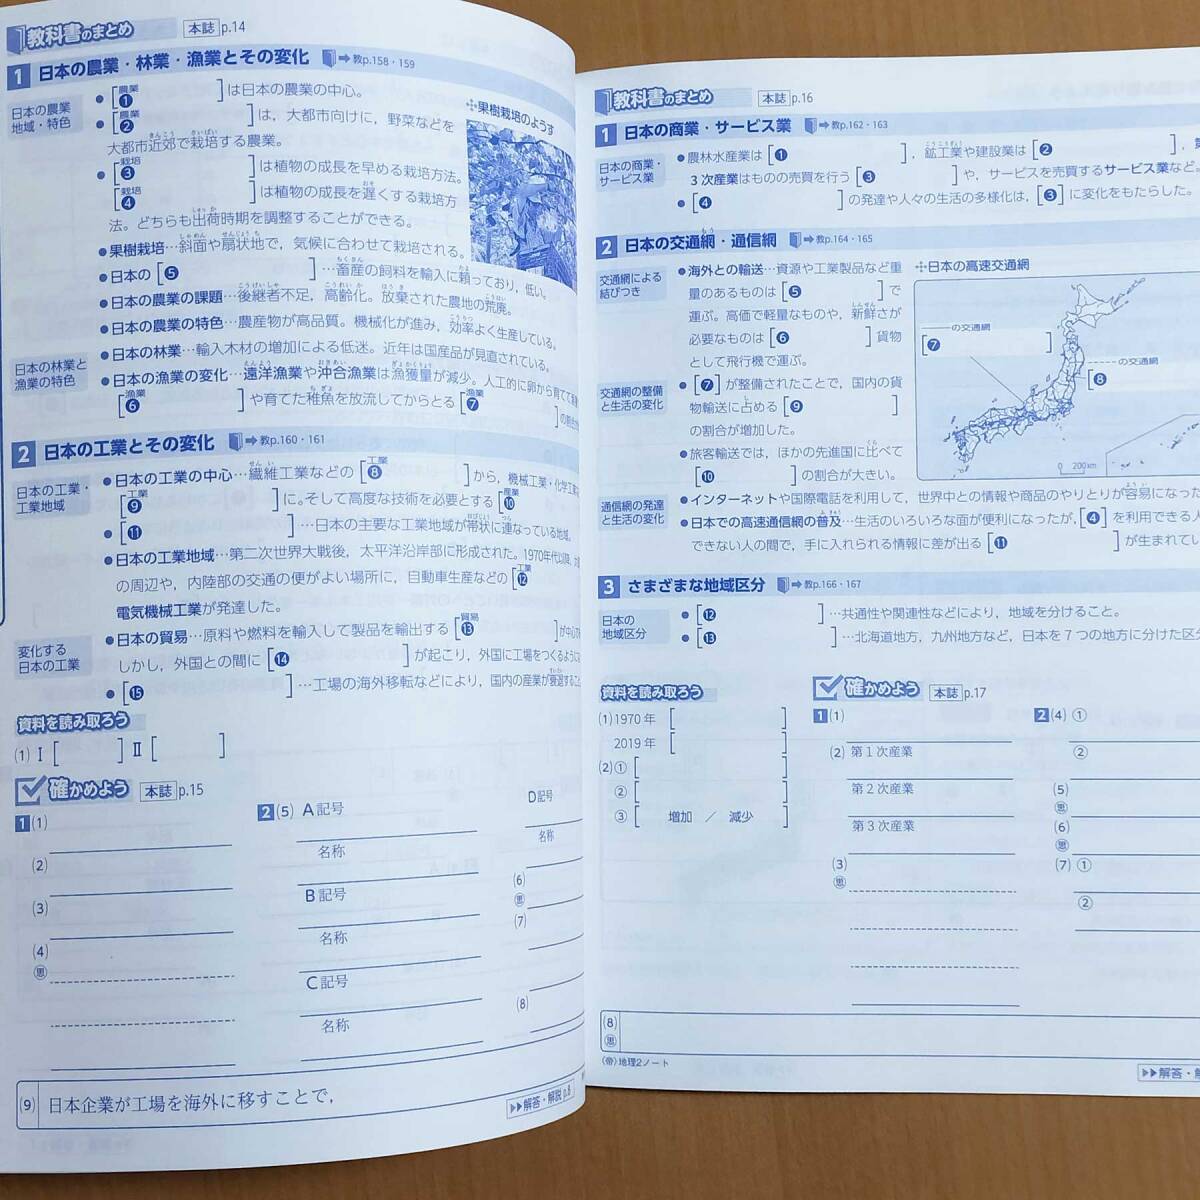 教科書のまとめ 本誌 p.14
1 日本の農業・林業・漁業とその変化 ➡教p.158・159
日本の農業
地域・特色
●[❶ 農業 ]は日本の農業の中心。
●[❷ 農業 ]は，大都市向けに，野菜などを
大都市近郊で栽培する農業。
●[❸ 栽培 ]は植物の成長を早める栽培方法。
[❹ 栽培 ]は植物の成長を遅くする栽培方
法。どちらも出荷時期を調整することができる。
●果樹栽培…斜面や扇状地で，気候に合わせて栽培される。
●日本の[❺ ]…畜産の飼料を輸入に頼っており，低い。
●日本の農業の課題…後継者不足，高齢化。放棄された農地の荒廃。
●日本の農業の特色…農産物が高品質。機械化が進み，効率よく生産している。
✣果樹栽培のようす
日本の林業と
漁業の特色
●日本の林業…輸入木材の増加による低迷。近年は国産品が見直されている。
●日本の漁業の変化…遠洋漁業や沖合漁業は漁獲量が減少。人工的に卵から育てて
[❻ 漁業 ]や育てた稚魚を放流してからとる[❼ 漁業 ]
2 日本の工業とその変化 ➡教p.160・161
日本の工業・
工業地域
●日本の工業の中心…繊維工業などの[❽ 工業 ]から，機械工業・化学工
[❾ 工業 ]に。そして高度な技術を必要とする[❿ 産業
●[⓫ ]…日本の主要な工業地域が帯状に連なっている地域。
●日本の工業地域…第二次世界大戦後，太平洋沿岸部に形成された。1970年代以降，
の周辺や，内陸部の交通の便がよい場所に，自動車生産などの[⓬ 工業
電気機械工業が発達した。
変化する
日本の工業
●日本の貿易…原料や燃料を輸入して製品を輸出する[⓭ 貿易 ]が中心
しかし，外国との間に[⓮ ]が起こり，外国に工場をつくるように
●[⓯ ]…工場の海外移転などにより，国内の産業が衰退すること。
資料を読み取ろう
(1) Ⅰ[ ] Ⅱ[ ]
確かめよう 本誌 p.15
1 (1)
(2)
(3)
(4)
思
2 (5) A記号
名称
B記号
名称
C記号
名称
D記号
名称
(6)
思
(7)
(8)
(9) 日本企業が工場を海外に移すことで，
▶▶解答・解説 p.8
教科書のまとめ 本誌 p.16
1 日本の商業・サービス業 ➡教p.162・163
日本の商業・
サービス業
●農林水産業は[❶ ]，鉱工業や建設業は[❷ ]，
3次産業はものの売買を行う[❸ ]や，サービスを売買するサービス業など。
●[❹ ]の発達や人々の生活の多様化は，[❸]に変化をもたらした。
2 日本の交通網・通信網 ➡教p.164・165
交通網による
結びつき
●海外との輸送…資源や工業製品など重
量のあるものは[❺ ]で
運ぶ。高価で軽量なものや，新鮮さが
必要なものは[❻ ]貨物
として飛行機で運ぶ。
交通網の整備
と生活の変化
●[❼]が整備されたことで，国内の貨
物輸送に占める[❾ ]
の割合が増加した。
●旅客輸送では，ほかの先進国に比べて
[❿ ]の割合が大きい。
✣日本の高速交通網
の交通網
[❼ ]
の交通網
[❽
0 200km
通信網の発達
と生活の変化
●インターネットや国際電話を利用して，世界中との情報や商品のやりとりが容易になった
●日本での高速通信網の普及…生活のいろいろな面が便利になったが，[❹]を利用できる人
できない人の間で，手に入れられる情報に差が出る[⓫ ]が生まれてい
3 さまざまな地域区分 ➡教p.166・167
日本の
地域区分
●[⓬ ]…共通性や関連性などにより，地域を分けること。
●[⓭ ]…北海道地方，九州地方など，日本を7つの地方に分けた区分
資料を読み取ろう
(1) 1970年[ ]
2019年[ ]
(2)①[ ]
②[ ]
③[ 増加 ／ 減少 ]
確かめよう 本誌 p.17
1 (1)
(2) 第1次産業
第2次産業
第3次産業
(3)
思
2 (4) ①
②
(5)
思
(6)
思
(7) ①
②
(8)
思
(帝)地理2ノート
▶▶解答・解